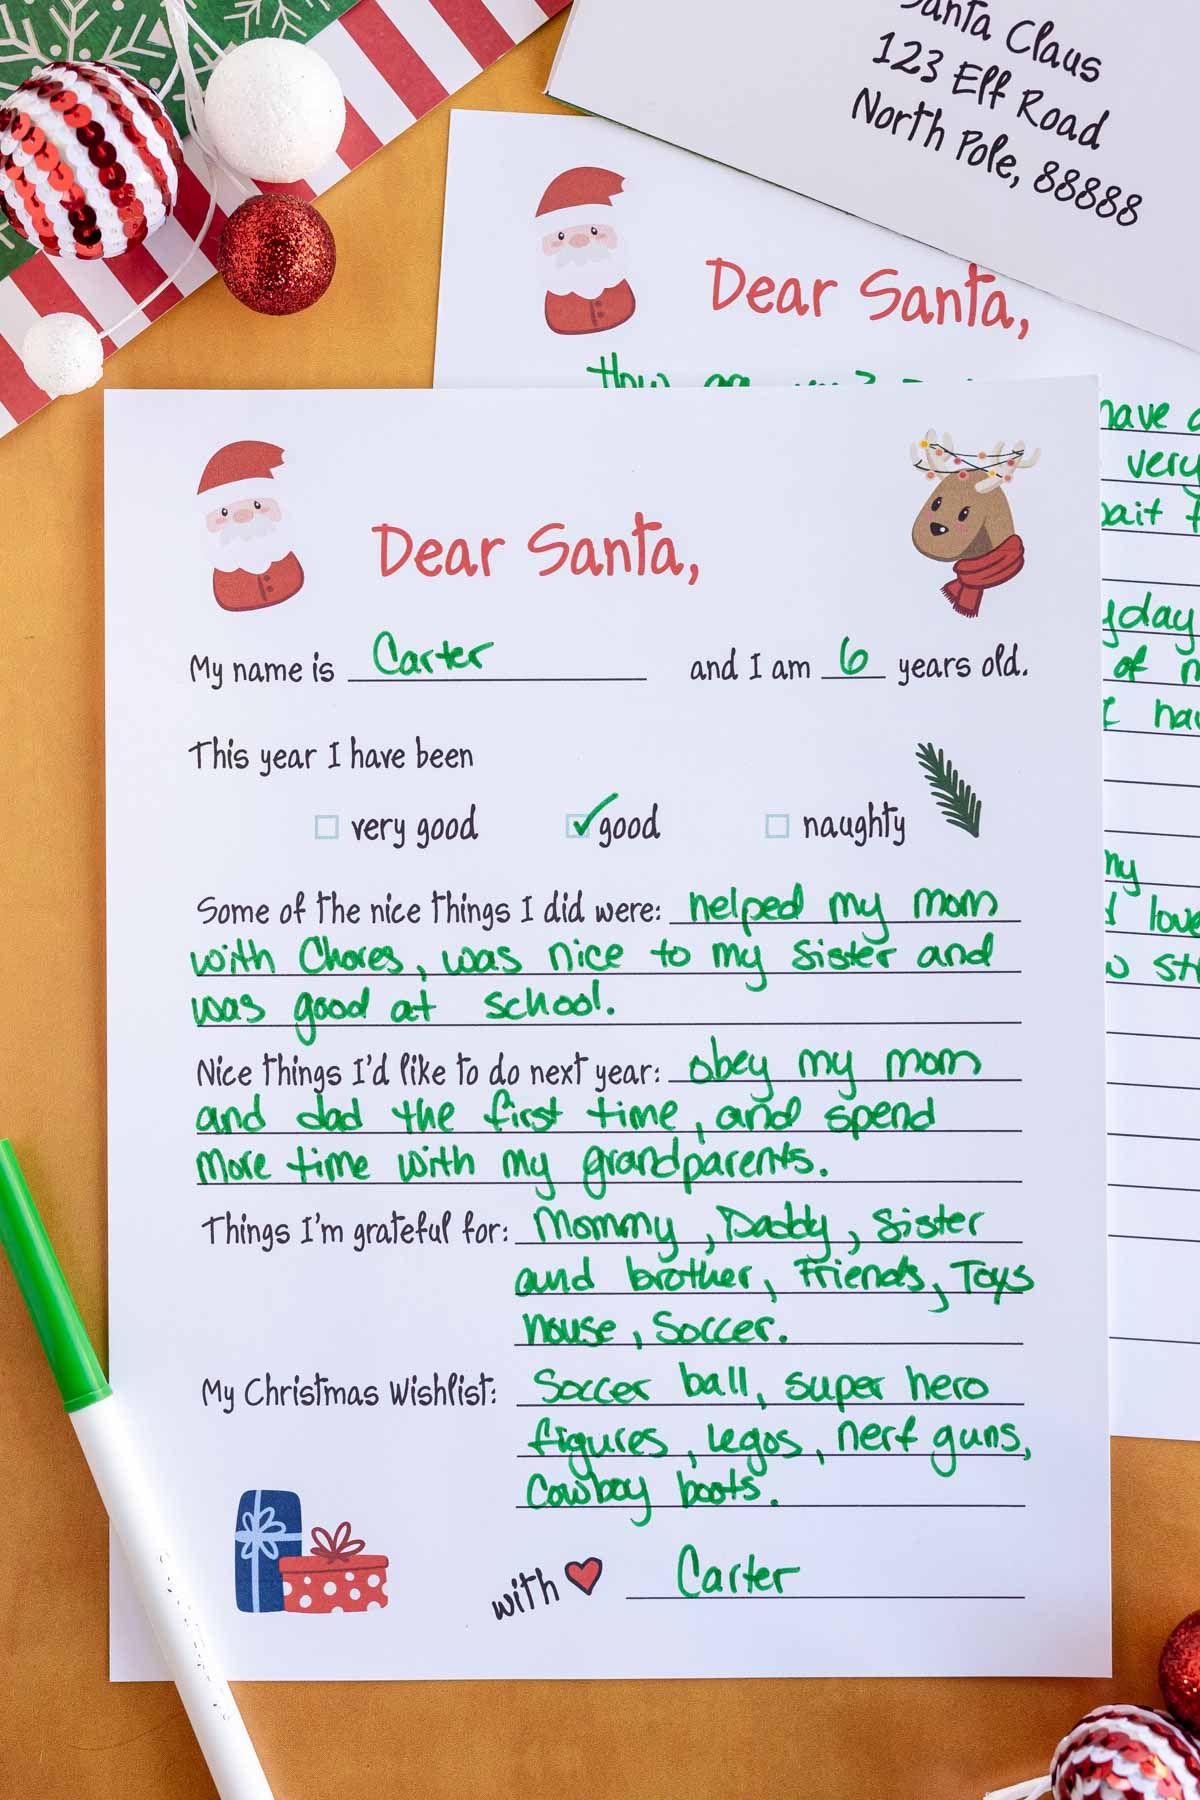 Santa Claus
123 Elf Road
North Pole, 88888
Dear Santa,
How are you?
have
very
wait
of
I hav
my
love
Dear Santa,
My name is Carter and I am 6 years old.
This year I have been
very good ✓ good naughty
Some of the nice things I did were: helped my mom
with Chores, was nice to my sister and
was good at school.
Nice things I'd like to do next year: obey my mom
and dad the first time, and spend
more time with my grandparents.
Things I'm grateful for: Mommy, Daddy, Sister
and brother, Friends, Toys
house, Soccer.
My Christmas Wishlist: Soccer ball, super hero
figures, Legos, nerf guns,
Cowboy boots.
with Carter